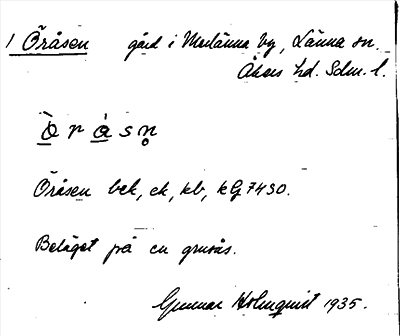 1 Öråsen gård i Merlänna by, Länna sn.
Åkers hd. Sdm. l.
ö̀ r ǻ s n̥
Öråsen bek, ek, kb, kG 7430.
Beläget på en grusås.
Gunnar Holmquist 1935.